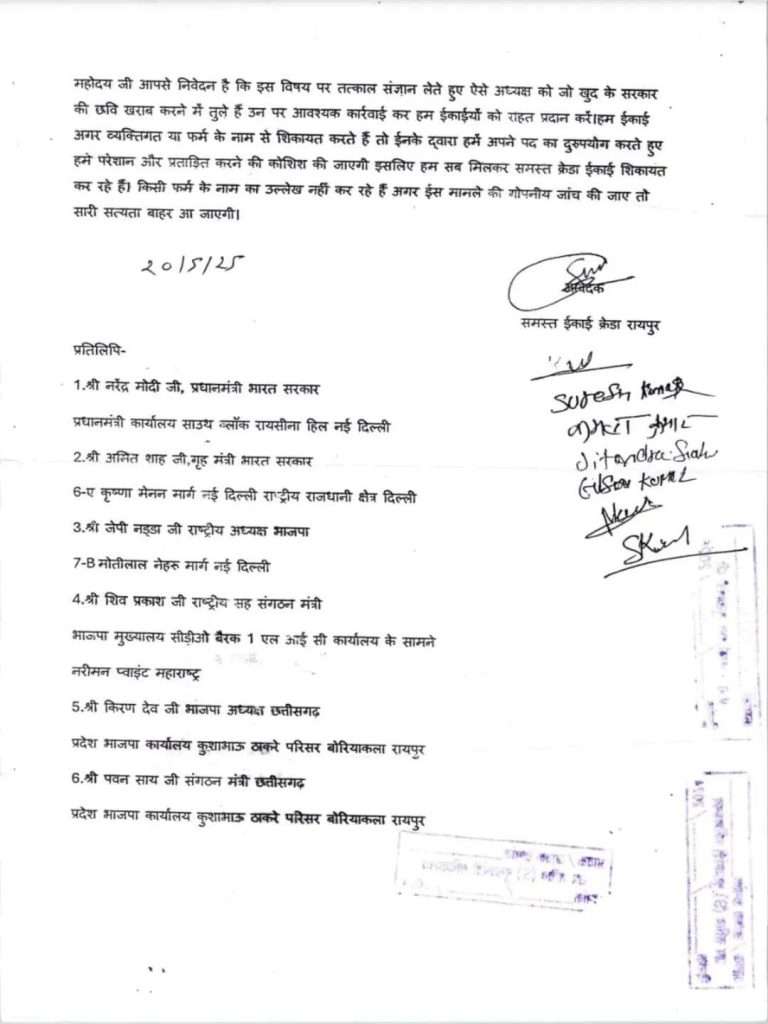 महोदय जी आपसे निवेदन है कि इस विषय पर तत्काल संज्ञान लेते हुए ऐसे अध्यक्ष को जो खुद के सरकार
की छवि खराब करने में तुले हैं उन पर आवश्यक कार्रवाई कर हम ईकाईयों को राहत प्रदान करें।हम ईकाई
अगर व्यक्तिगत या फर्म के नाम से शिकायत करते हैं तो ईनके द्वारा हमें अपने पद का दुरुपयोग करते हुए
हमे परेशान और प्रताड़ित करने की कोशिश की जाएगी इसलिए हम सब मिलकर समस्त क्रेडा ईकाई शिकायत
कर रहे हैं। किसी फर्म के नाम का उल्लेख नहीं कर रहे हैं अगर ईस मामले की गोपनीय जांच की जाए तो
सारी सत्यता बाहर आ जाएगी।
20/5/25
आवेदक
समस्त ईकाई क्रेडा रायपुर
प्रतिलिपि-
1.श्री नरेंद्र मोदी जी, प्रधानमंत्री भारत सरकार
प्रधानमंत्री कार्यालय साउथ ब्लॉक रायसीना हिल नई दिल्ली
2.श्री अमित शाह जी,गृह मंत्री भारत सरकार
6-ए कृष्णा मेनन मार्ग नई दिल्ली राष्ट्रीय राजधानी क्षेत्र दिल्ली
3.श्री जेपी नड्डा जी राष्ट्रीय अध्यक्ष भाजपा
7-B मोतीलाल नेहरू मार्ग नई दिल्ली
4.श्री शिव प्रकाश जी राष्ट्रीय सह संगठन मंत्री
भाजपा मुख्यालय सीडीओ बैरक 1 एल आई सी कार्यालय के सामने
नरीमन प्वाइंट महाराष्ट्र
5.श्री किरण देव जी भाजपा अध्यक्ष छत्तीसगढ़
प्रदेश भाजपा कार्यालय कुशाभाऊ ठाकरे परिसर बोरियाकला रायपुर
6.श्री पवन साय जी संगठन मंत्री छत्तीसगढ़
प्रदेश भाजपा कार्यालय कुशाभाऊ ठाकरे परिसर बोरियाकला रायपुर
Suresh Kumar
Jitendra
Kumar